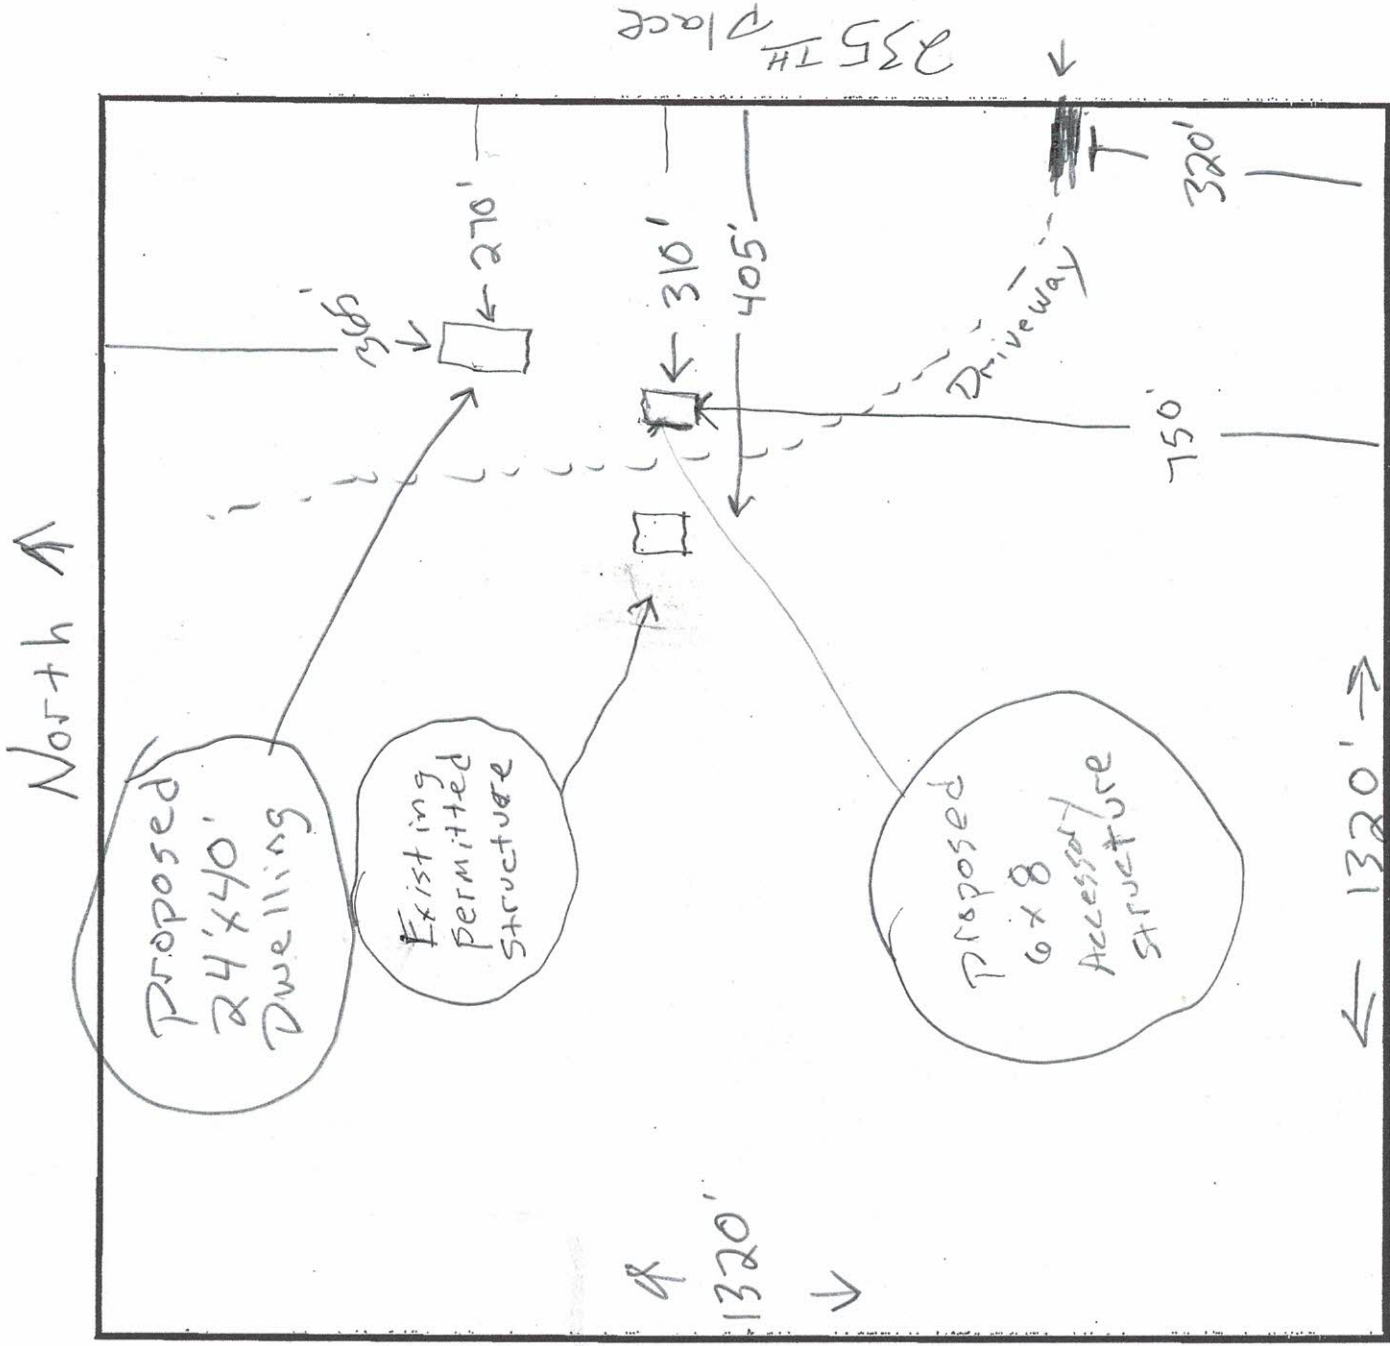 North
235TH
place
365'
270'
310'
405'
Driveway
320'
750'
Proposed
24'x40'
Dwelling
Existing
permitted
structure
proposed
6x8
Accessory
structure
1320'
1320'